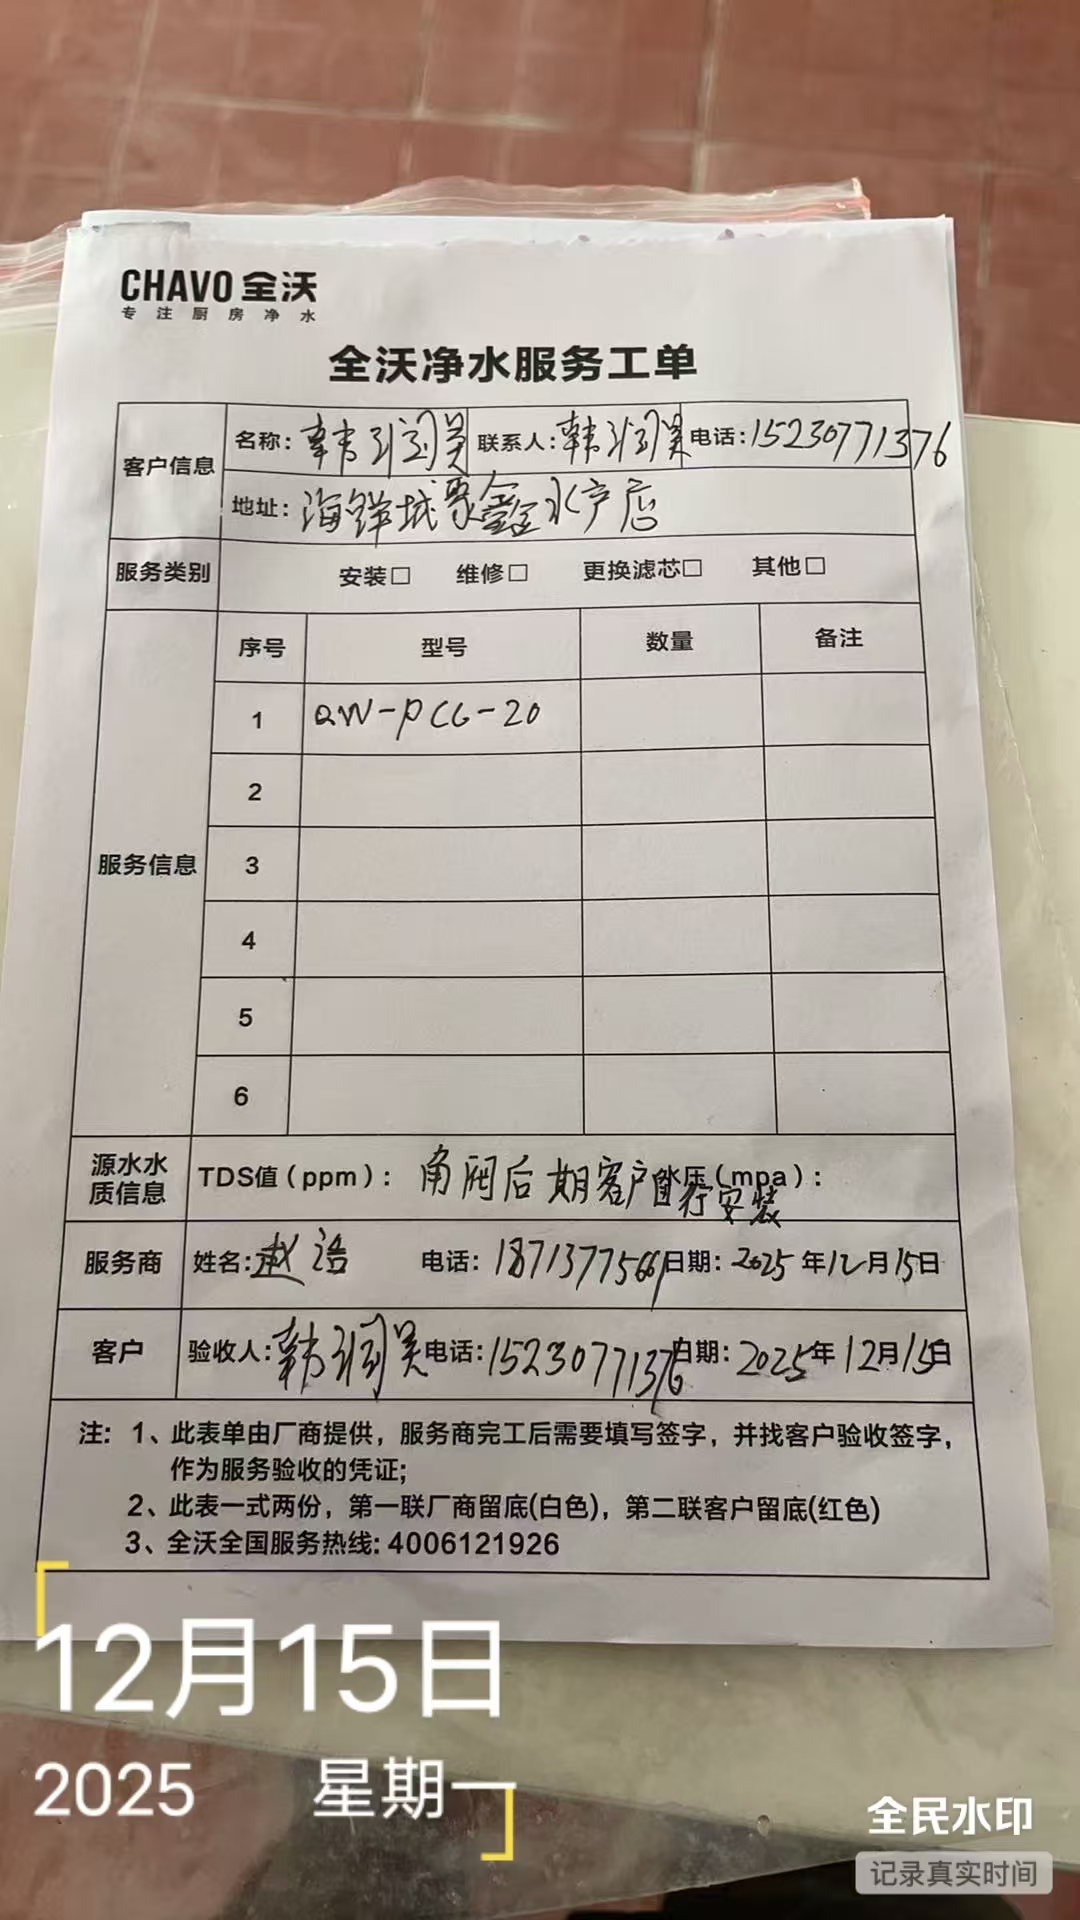 CHAVO 全沃
专注厨房净水
全沃净水服务工单
客户信息 名称: 韩润昊 联系人: 韩润昊 电话: 15230771376
地址: 海鲜城聚鑫水产店
服务类别 安装□ 维修□ 更换滤芯□ 其他□
服务信息 序号 型号 数量 备注
1 QW-PCG-20
2
3
4
5
6
源水水质信息 TDS值(ppm): 角阀后期客户自行安装 水压(mpa):
服务商 姓名: 赵浩 电话: 18713775661 日期: 2025年12月15日
客户 验收人: 韩润昊 电话: 15230771376 日期: 2025年12月15日
注: 1、此表单由厂商提供，服务商完工后需要填写签字，并找客户验收签字，
作为服务验收的凭证;
2、此表一式两份，第一联厂商留底(白色)，第二联客户留底(红色)
3、全沃全国服务热线: 4006121926
12月15日
2025 星期一
全民水印
记录真实时间